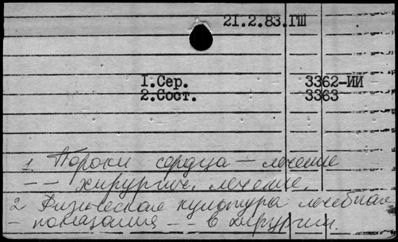 21.2.83.ГШ
1.Сер. 3362-ИИ
2.Сост. 3363
1 Пороки сердца — лечение
– – хирургич. лечение.
2 Физическая культура лечебная
– показания – в хирургии.